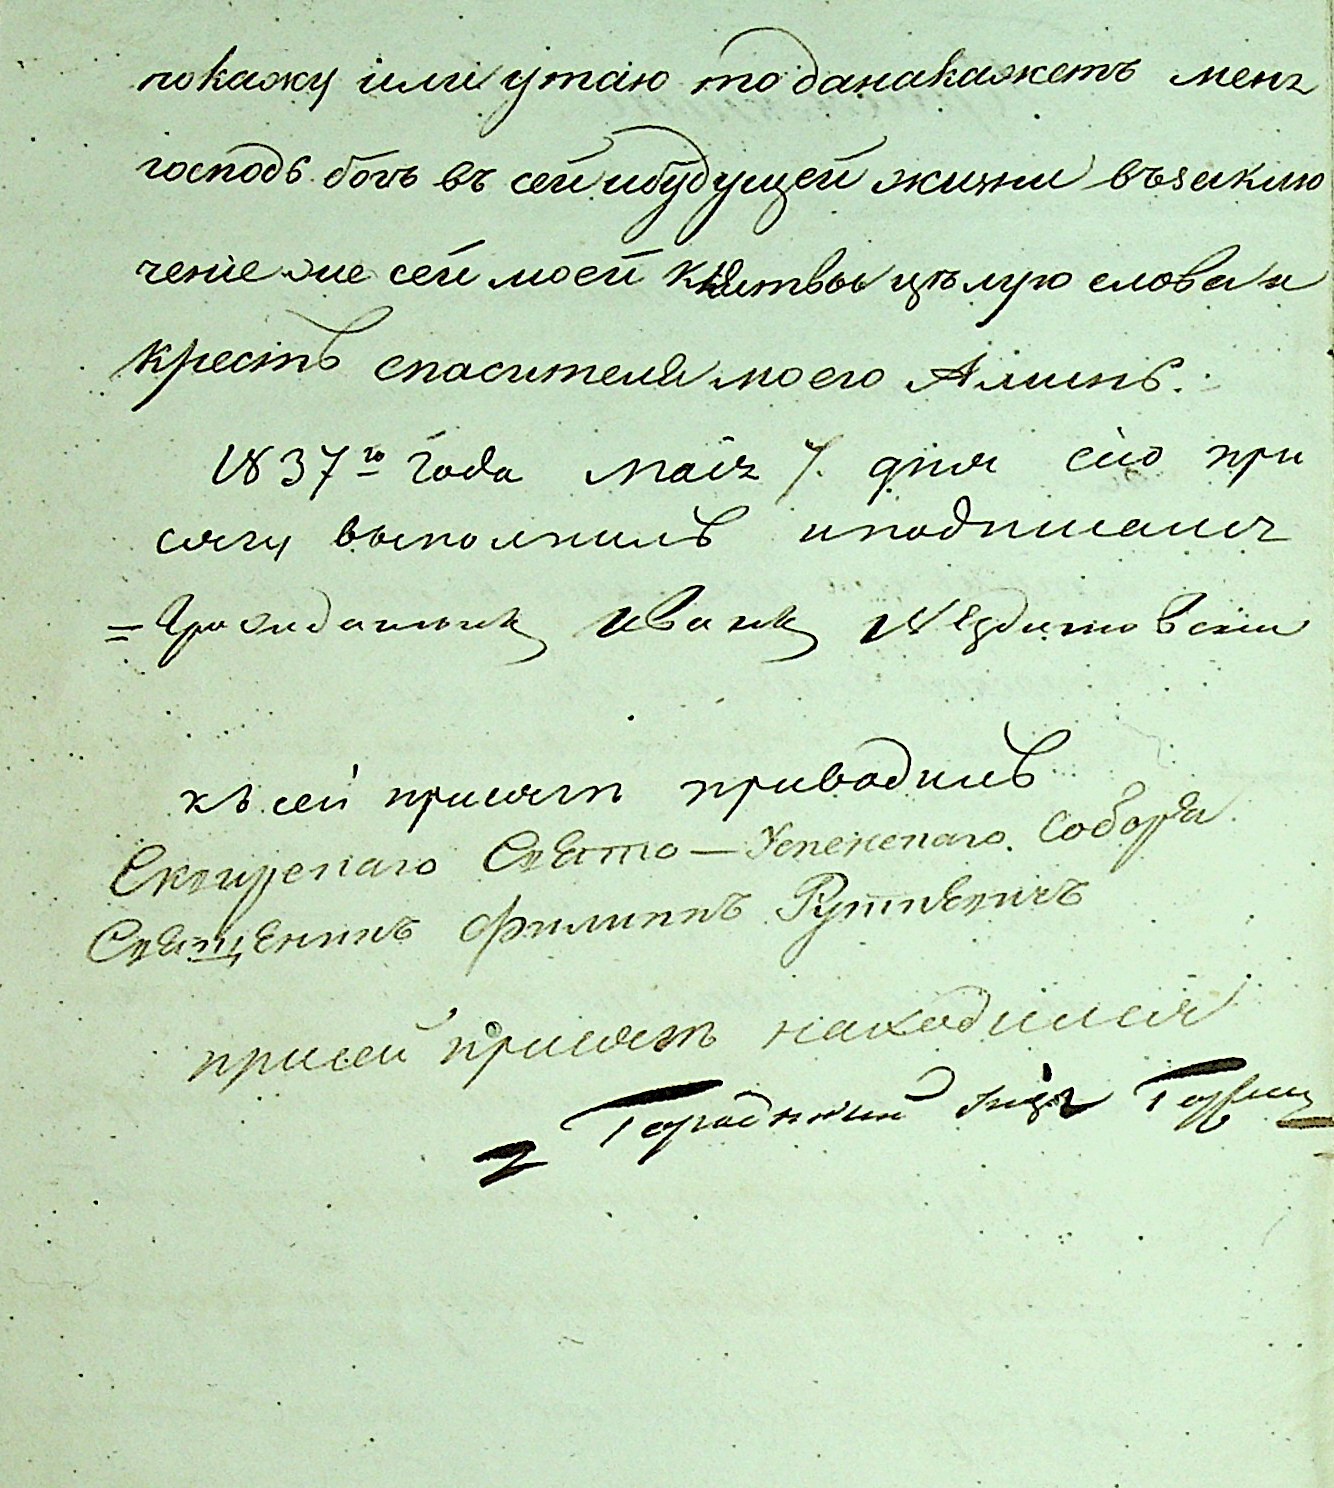 покажу или утаю то данакажетъ меня
господь богъ въ сей ибудущей жизни въ заклю
ченіе же сей моей клятвы цѣлую слова и
крестъ спасителя моего Аминь.
1837го года маія 7. дня сію при
сягу выполнилъ иподписался
Гражданинъ Иванъ
къ сей присягѣ приводилъ
Сквирскаго Свято-Успенскаго Собора
Священникъ Филиппъ Руткевичъ
присей присягѣ находился
Городничий